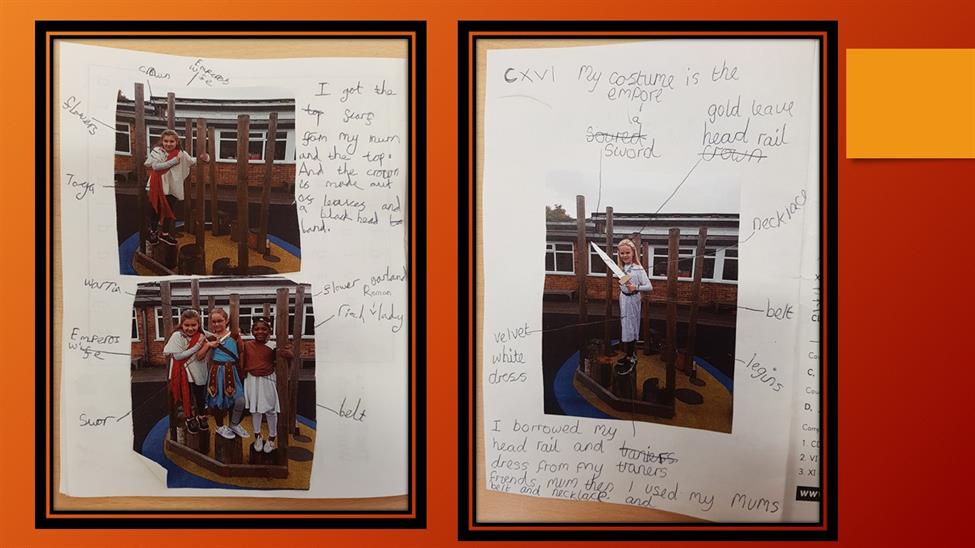 crown
Emperos
wife
flowers
Toga
I got the
top scars
from my mum
and the top.
And the crown
is made out
of leaves and
a black head b
band.
warrin
Emperos
wife
swor
flower garland
Roman
rich lady
belt
CXVI My costume is the
empore
a
sword
gold leave
head rail
crown
necklace
velvet
white
dress
belt
legins
I borrowed my
head rail and traners
dress from my traners
friends mum then I used my Mums
belt and necklace and
C.
D.
1. CL
2. VI
3. XI
WW